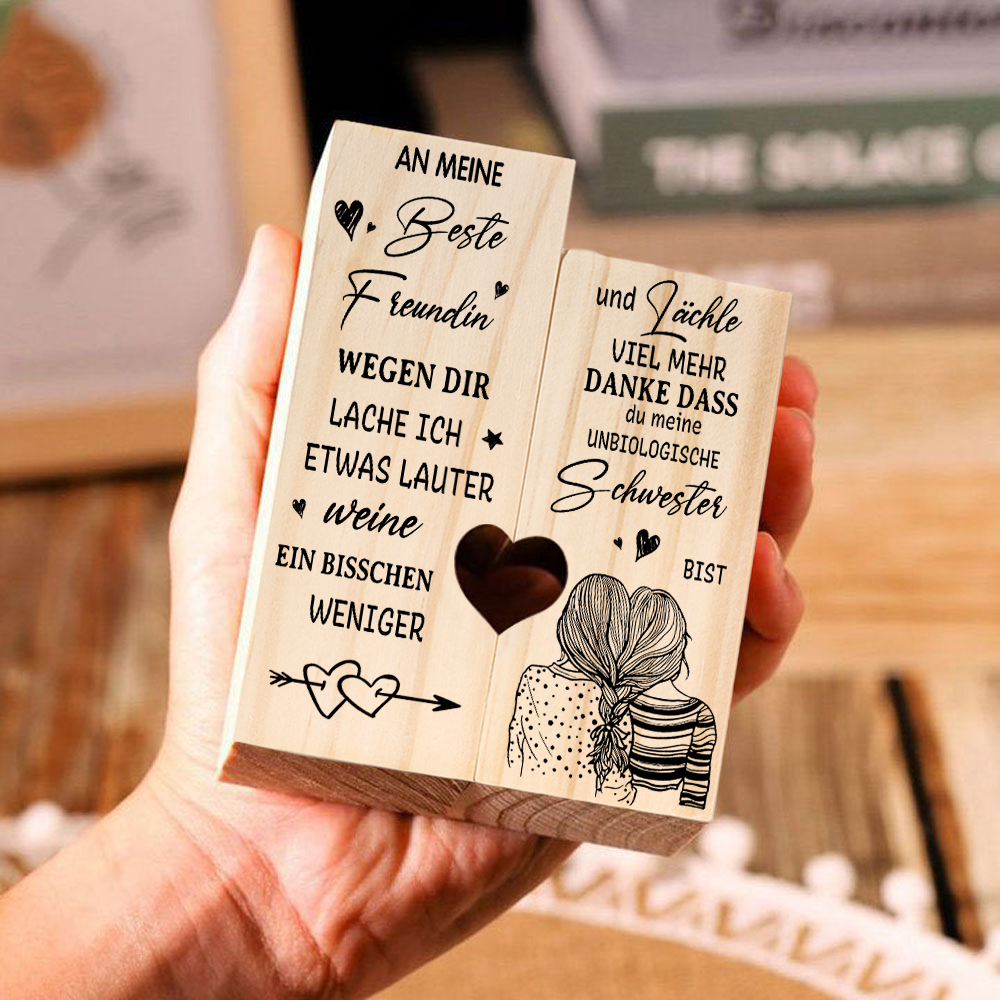 AN MEINE
Beste
Freundin
WEGEN DIR
LACHE ICH
ETWAS LAUTER
weine
EIN BISSCHEN
WENIGER
und Lächle
VIEL MEHR
DANKE DASS
du meine
UNBIOLOGISCHE
Schwester
BIST
THE SOLACE